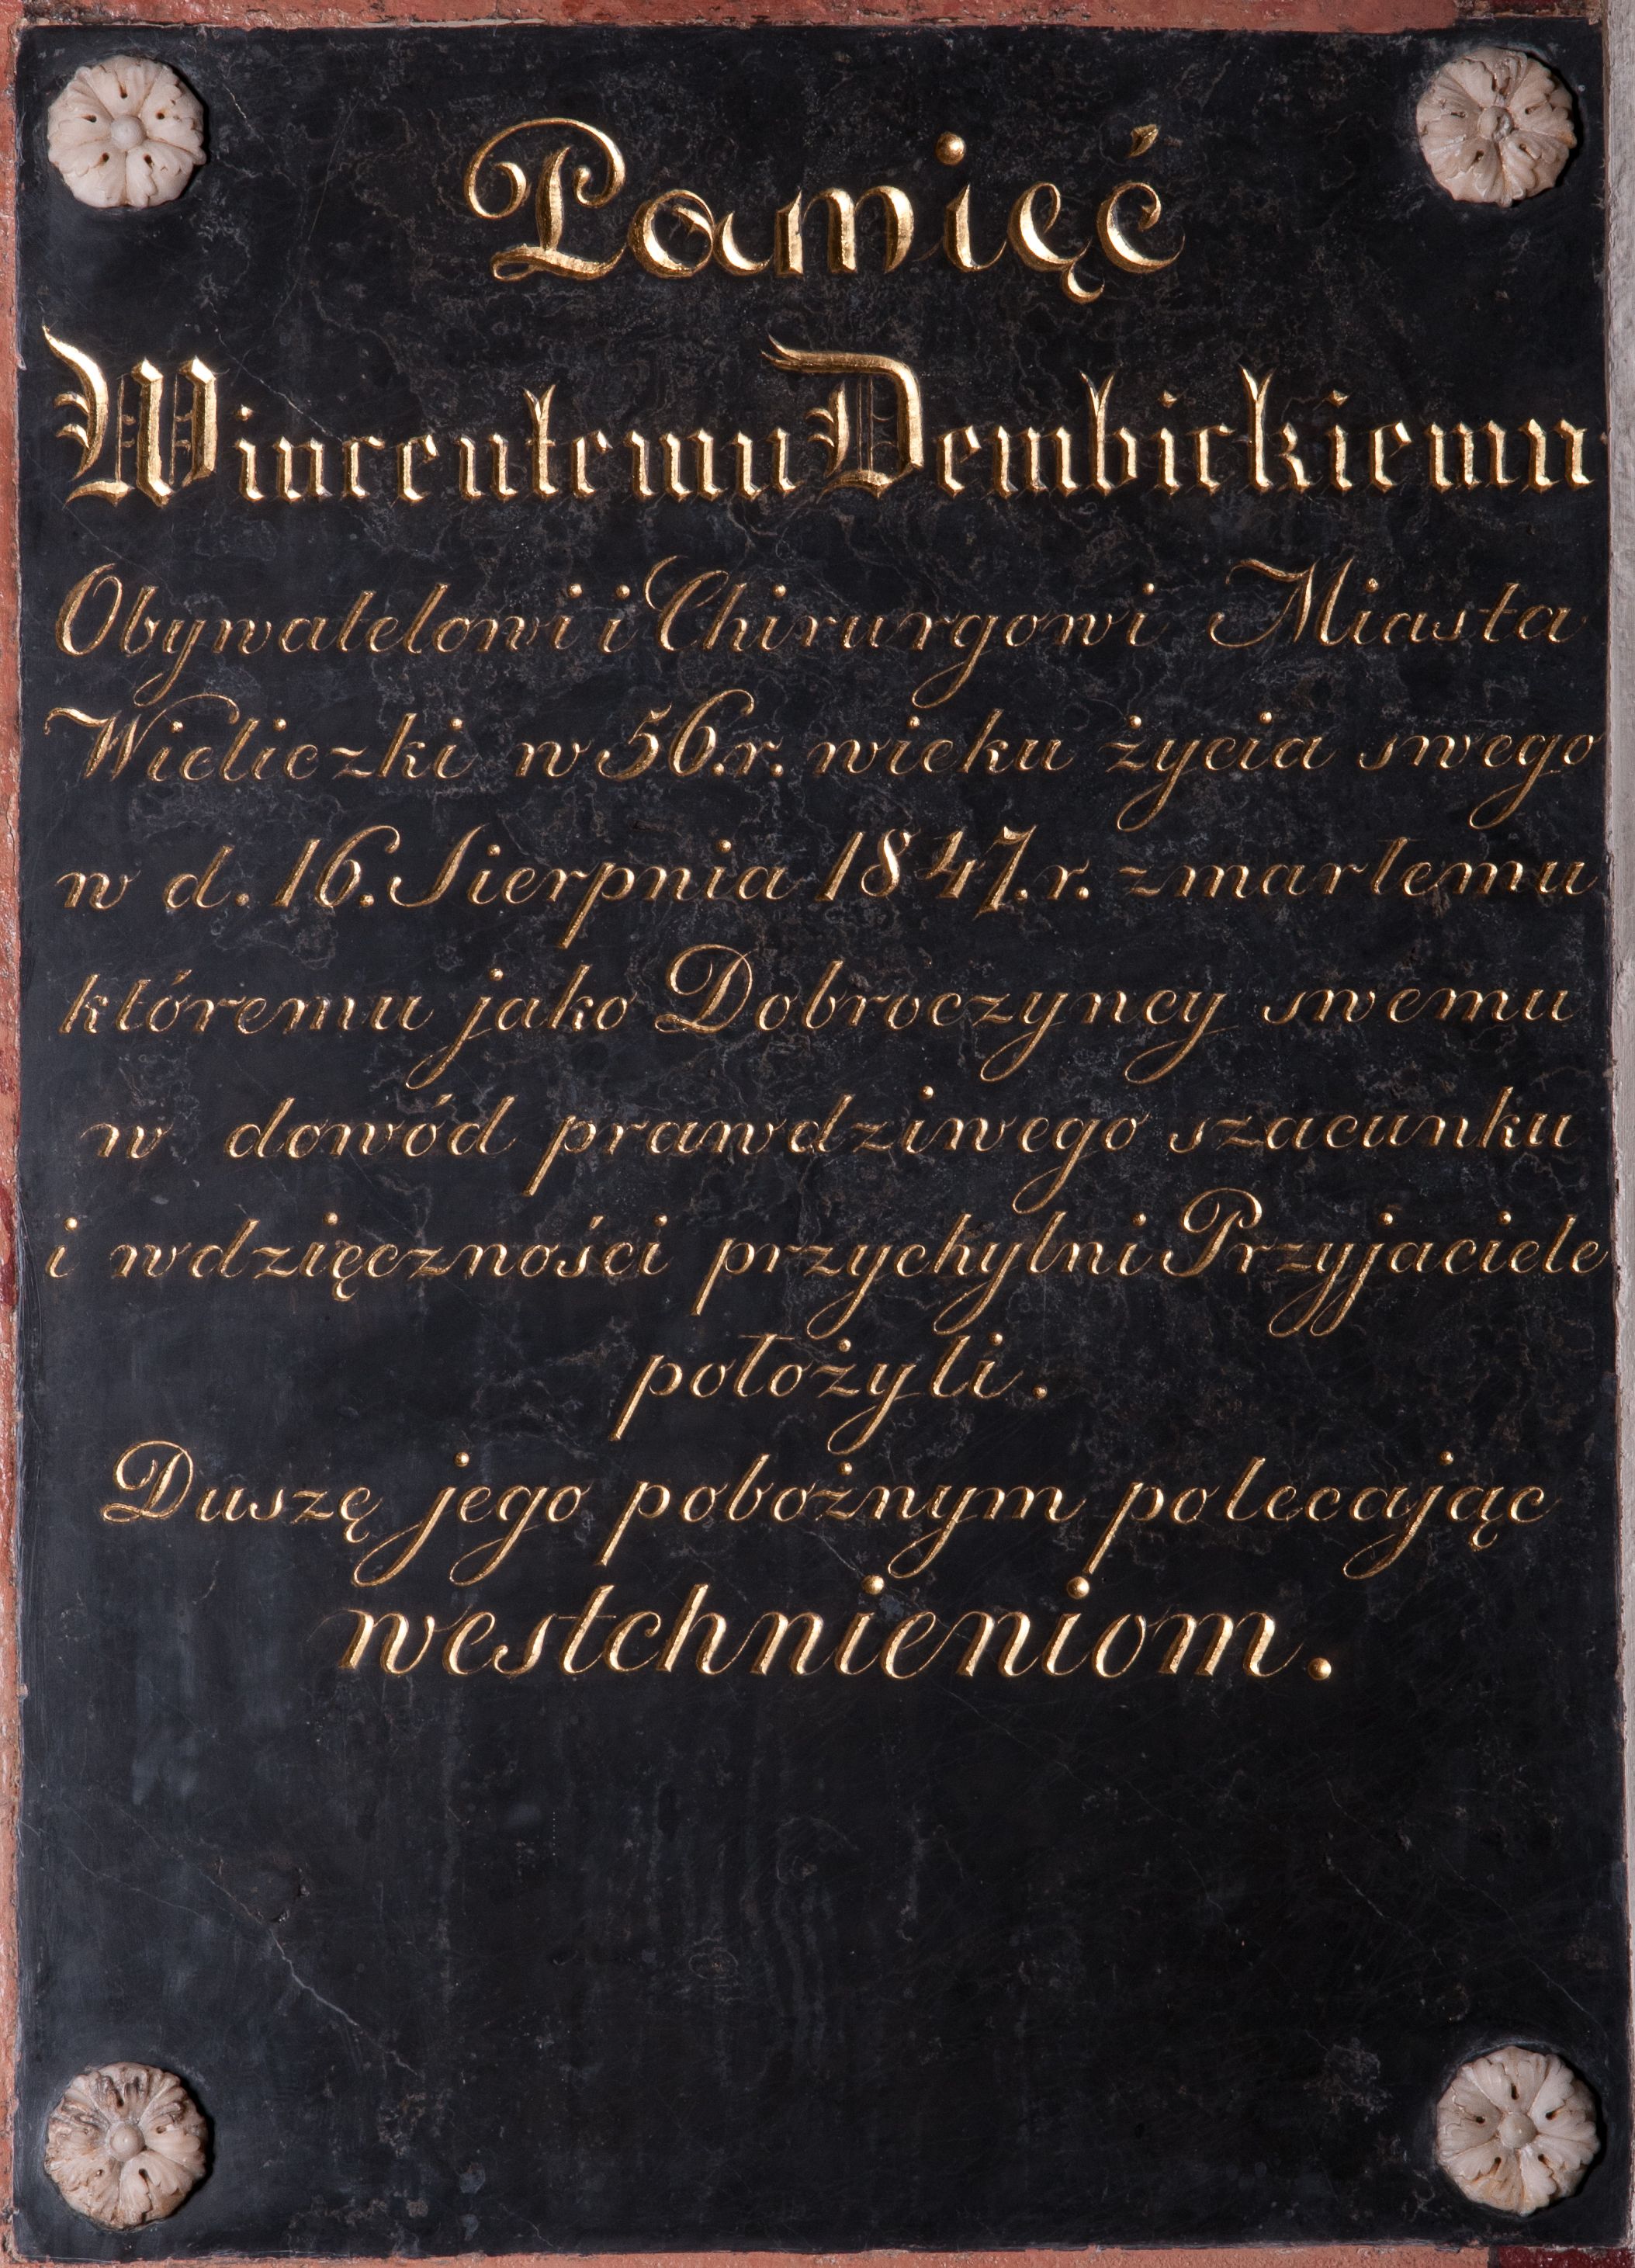 Pamięć
Wincentemu Dembickiemu
Obywatelowi i Chirurgowi Miasta
Wieliczki w 56. r. wieku życia swego
w d. 16. Sierpnia 1847. r. zmarłemu
któremu jako Dobroczyncy swemu
w dowód prawdziwego szacunku
i wdzięczności przychylni Przyjaciele
położyli.
Duszę jego pobożnym polecając
westchnieniom.